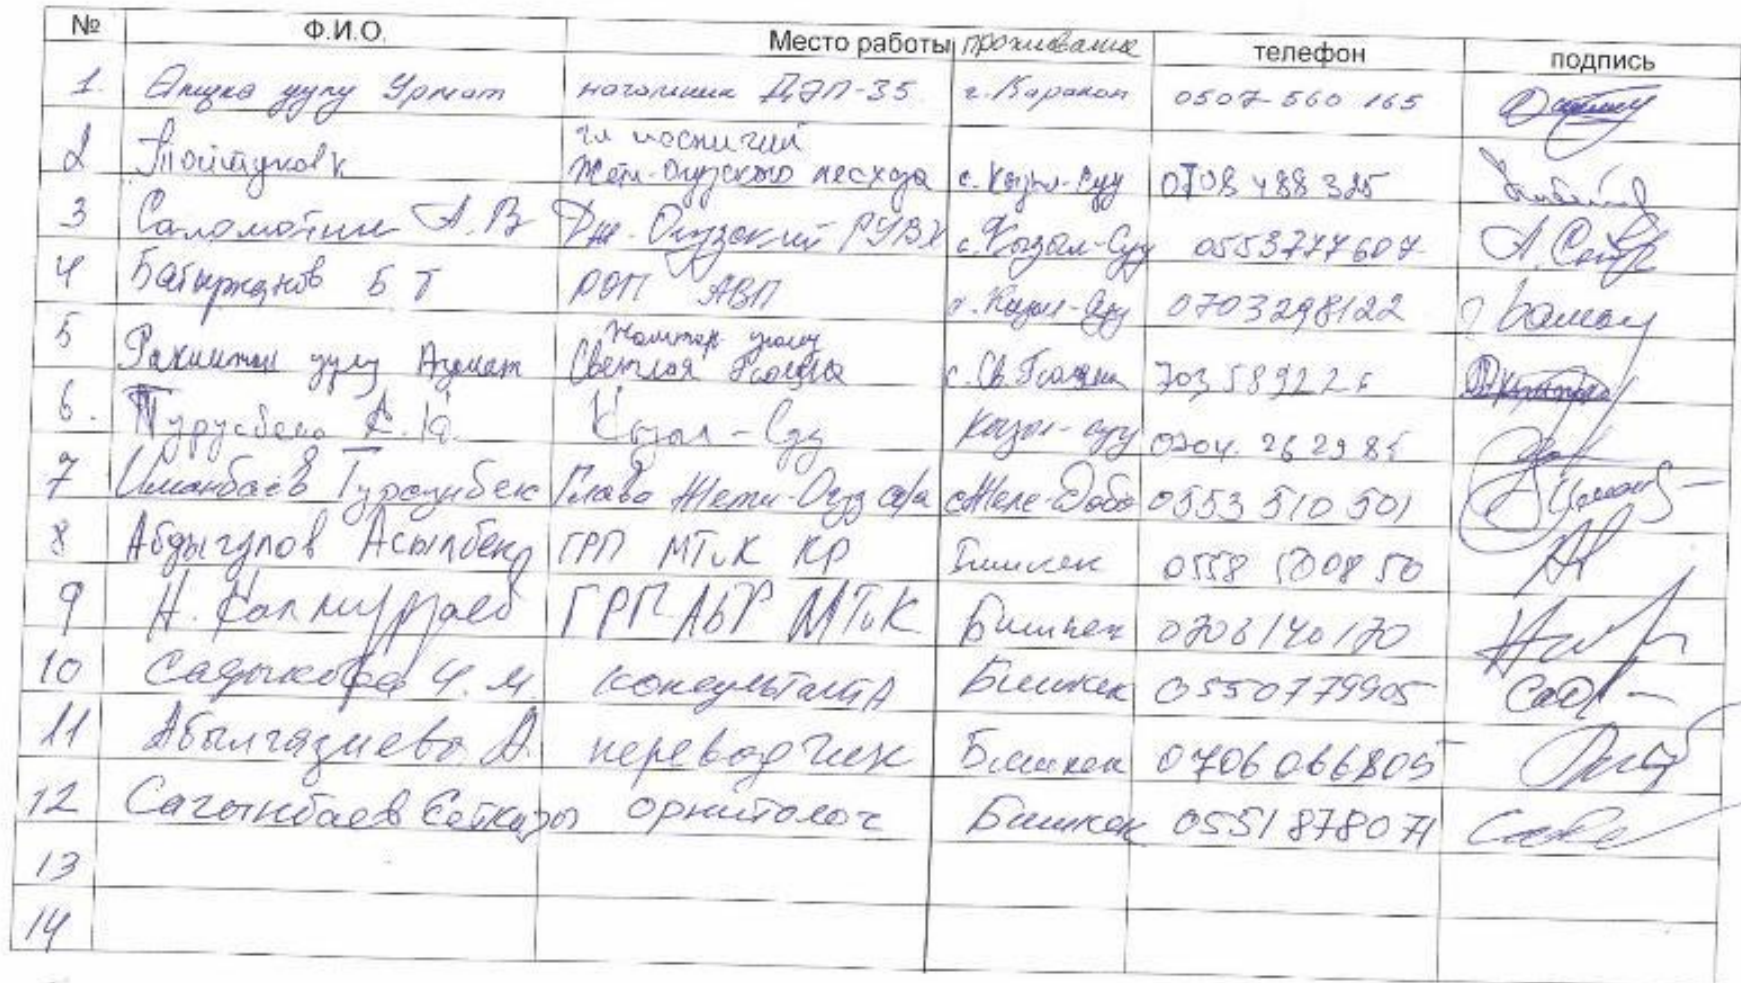 № Ф.И.О. Место работы проживание телефон подпись
1. уулу Урмат начальник ДЭП-35 г. Каракол 0507-560 165
2 гл лесничий
Жети-Огузского лесхоза с. Кызыл-Суу 0708 488 325
3 Саломатин А.В Дже-Огузский РУВХ с. Кызыл-Суу 0553777607
4 Батырканов Б Т РОП АВП с. Кызыл-Суу 0703298122
5 уулу Азамат Светлая Поляна с. Св. Поляна
6. Кызыл-Суу Кызыл-суу
7 Иманбаев Турсунбек Глава Жети-Огуз а/а с. Желе-Добо 0553 510 501
8 Абдыгулов Асылбек ГРП МТиК КР Бишкек 0558 500850
9 Н. ГРП АБР МТиК Бишкек 0706140170
10 Садыкова Ч. М. консультант Бишкек 0550779905
11 Абылгазиева А. переводчик Бишкек 0706066805
12 Сагынбаев Сетказы орнитолог Бишкек 0551878071
13
14